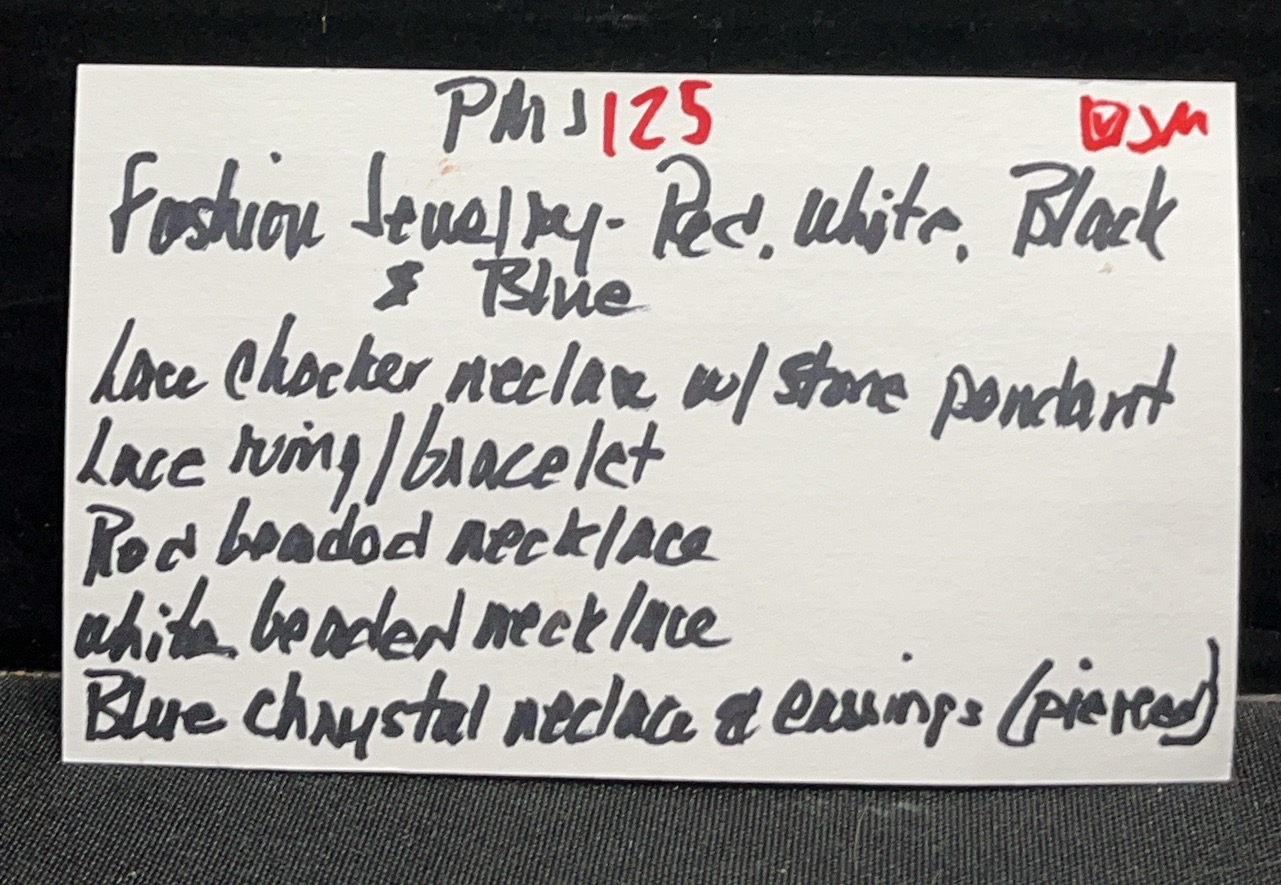 PMJ125
Fashion Jewelry - Red, White, Black
& Blue
Lace Chocker neclace w/ stone pendant
Lace ring/bracelet
Red beaded necklace
white beaded necklace
Blue Chrystal neclace & earrings (pierced)